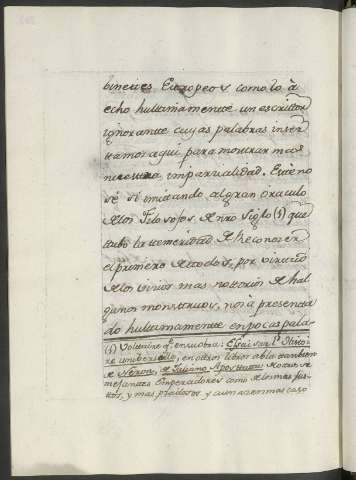 binetes Europeos como lo à
echo hultimamente un escrittor
ignorante cuyas palabras inser
ttamos aqui para mostrar mas
nuestra imparcialidad. Este no
sé si imitando al gran oraculo
de los Filosofos de nro Siglo (1) que
tubo la temeridad de Reconocer
el primero de todos, por
de los mas nottorios de hal
gunos monstruos, nos à presenta
do hultimamente en pocas pala-
(1) Voltaire qe. en su obra: Essai sur l' Histoi-
re universelle, en ottros libros abla tambien
de Neron, de Juliano Aposttata
Emperadores como de los mas jus-
ttos, y mas piadosos y aun